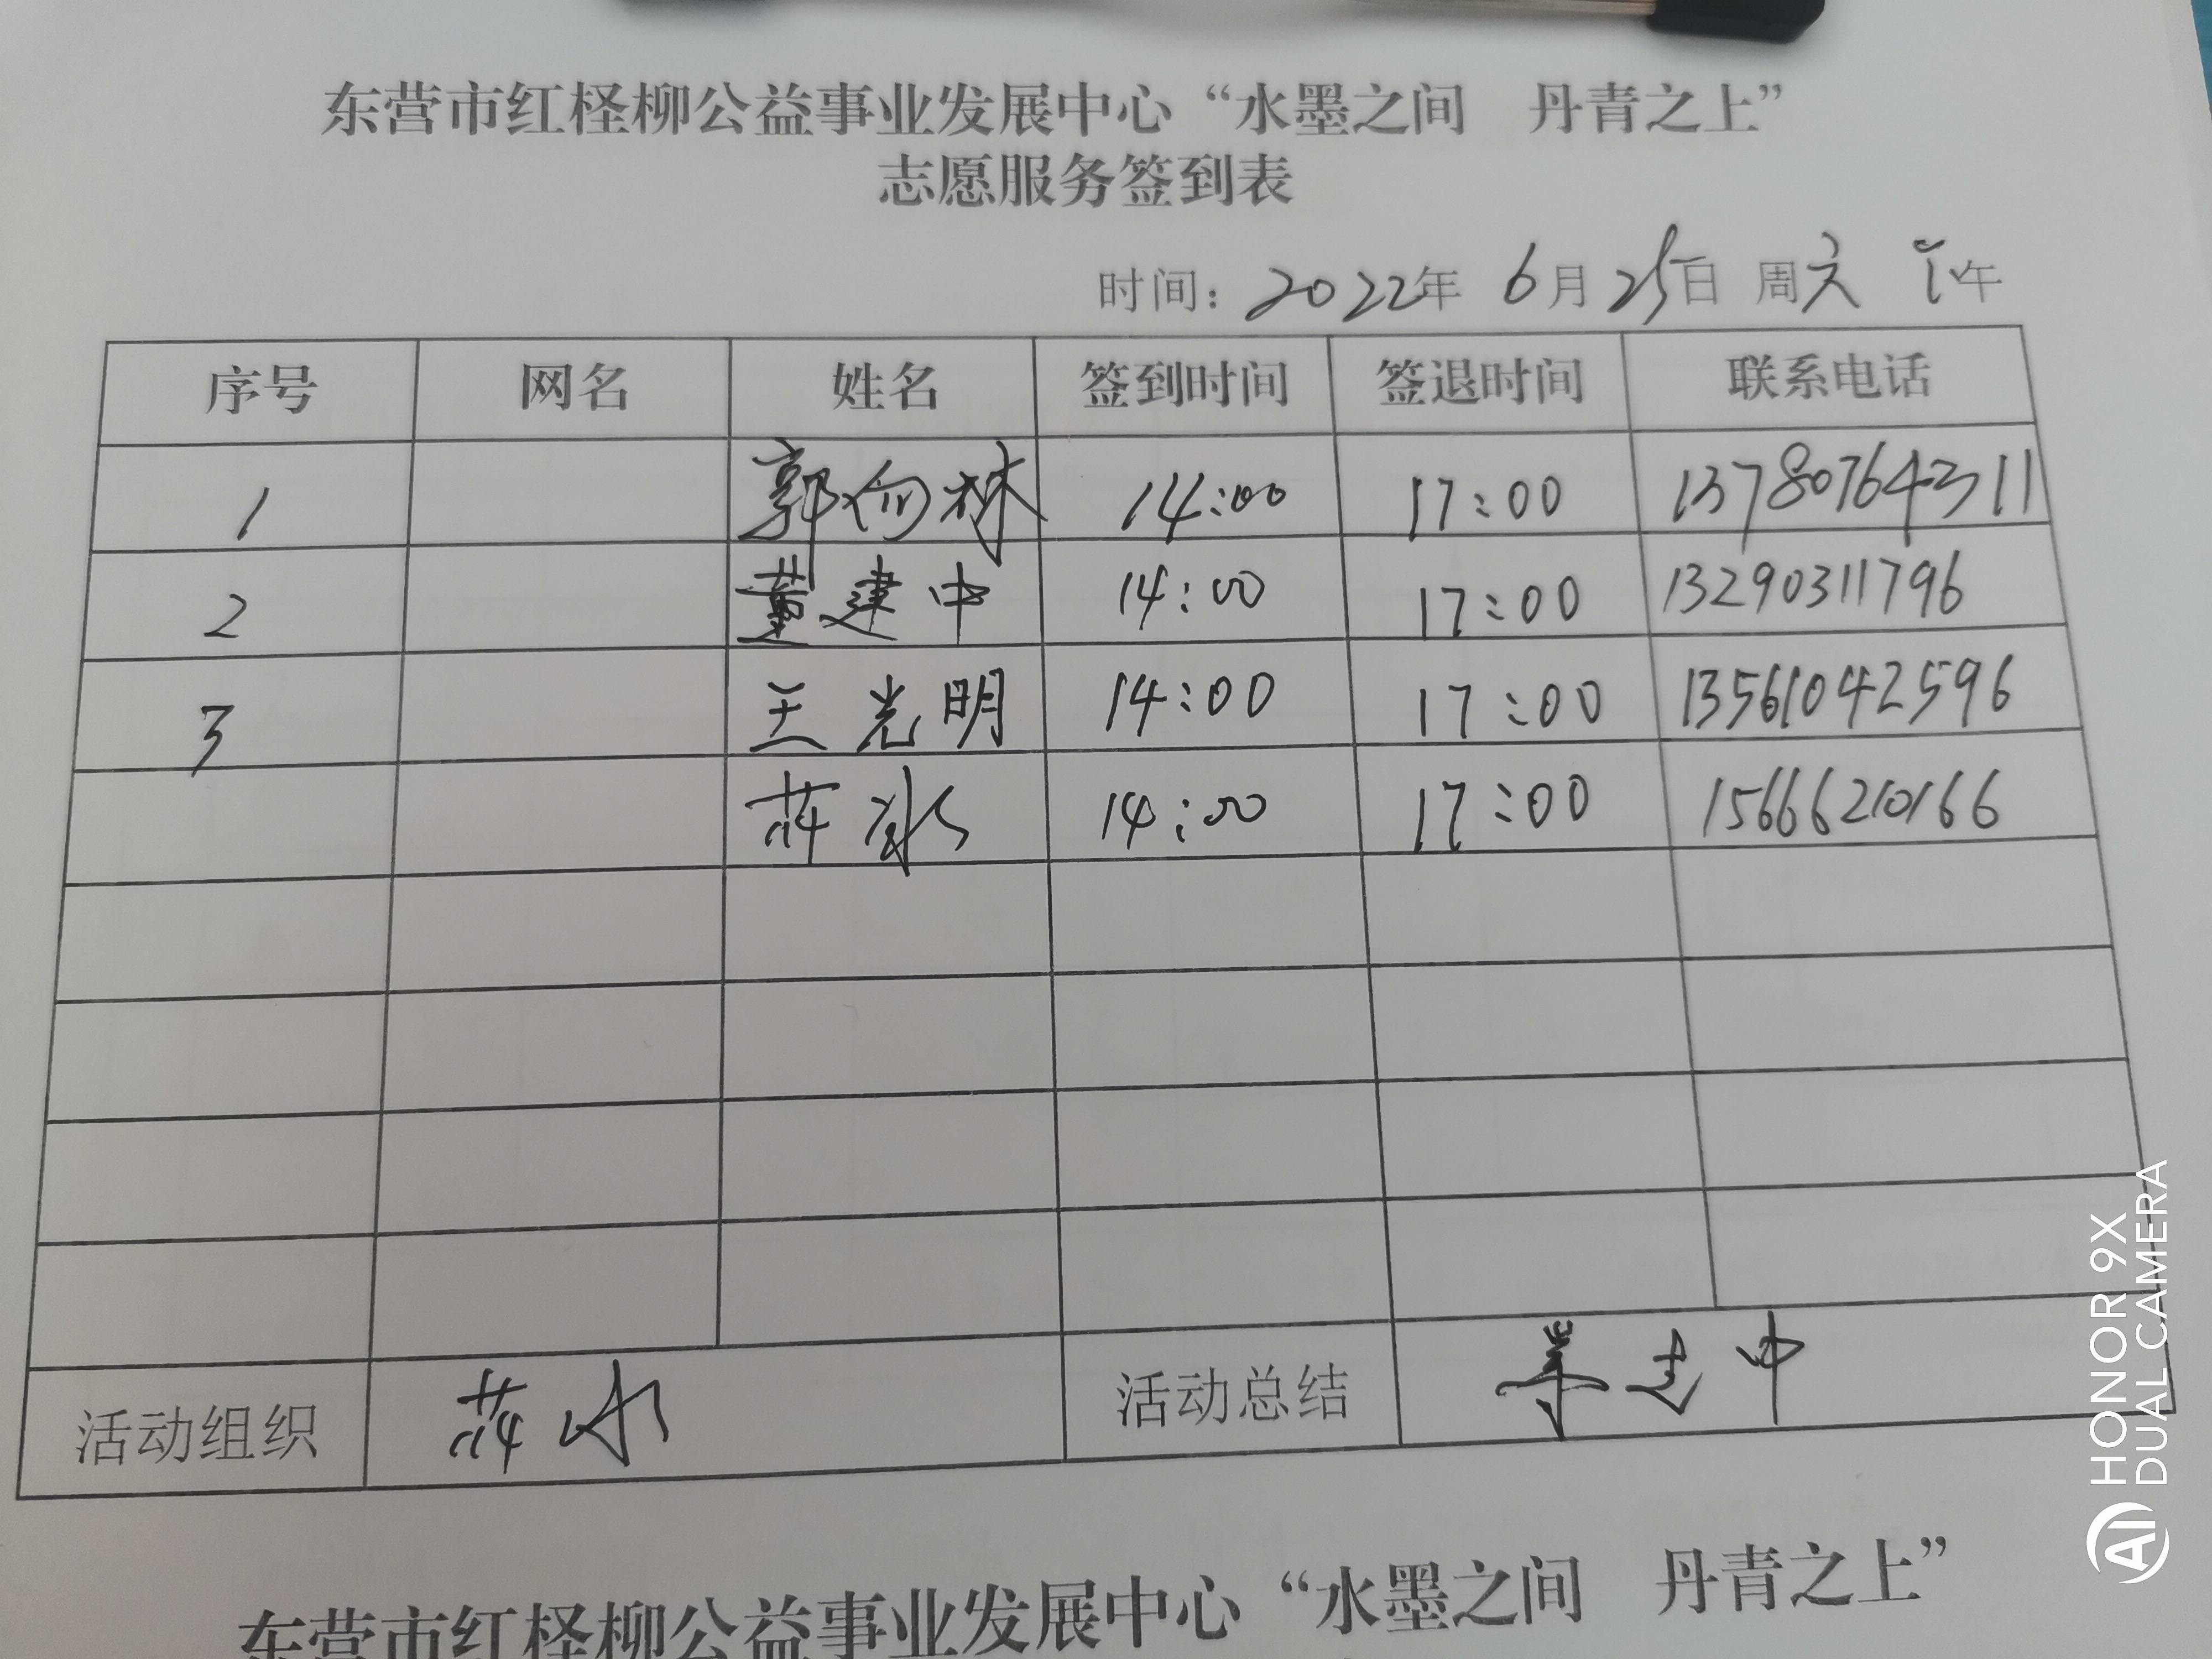 东营市红柽柳公益事业发展中心“水墨之间 丹青之上”
志愿服务签到表
时间：2022年 6月25日 周六 下午
序号 网名 姓名 签到时间 签退时间 联系电话
1 郭向林 14:00 17:00 13780764311
2 董建中 14:00 17:00 13290311796
3 王光明 14:00 17:00 13561042596
14:00 17:00 15666210166
活动组织 活动总结
HONOR 9X
DUAL CAMERA
AI
东营市红柽柳公益事业发展中心“水墨之间 丹青之上”